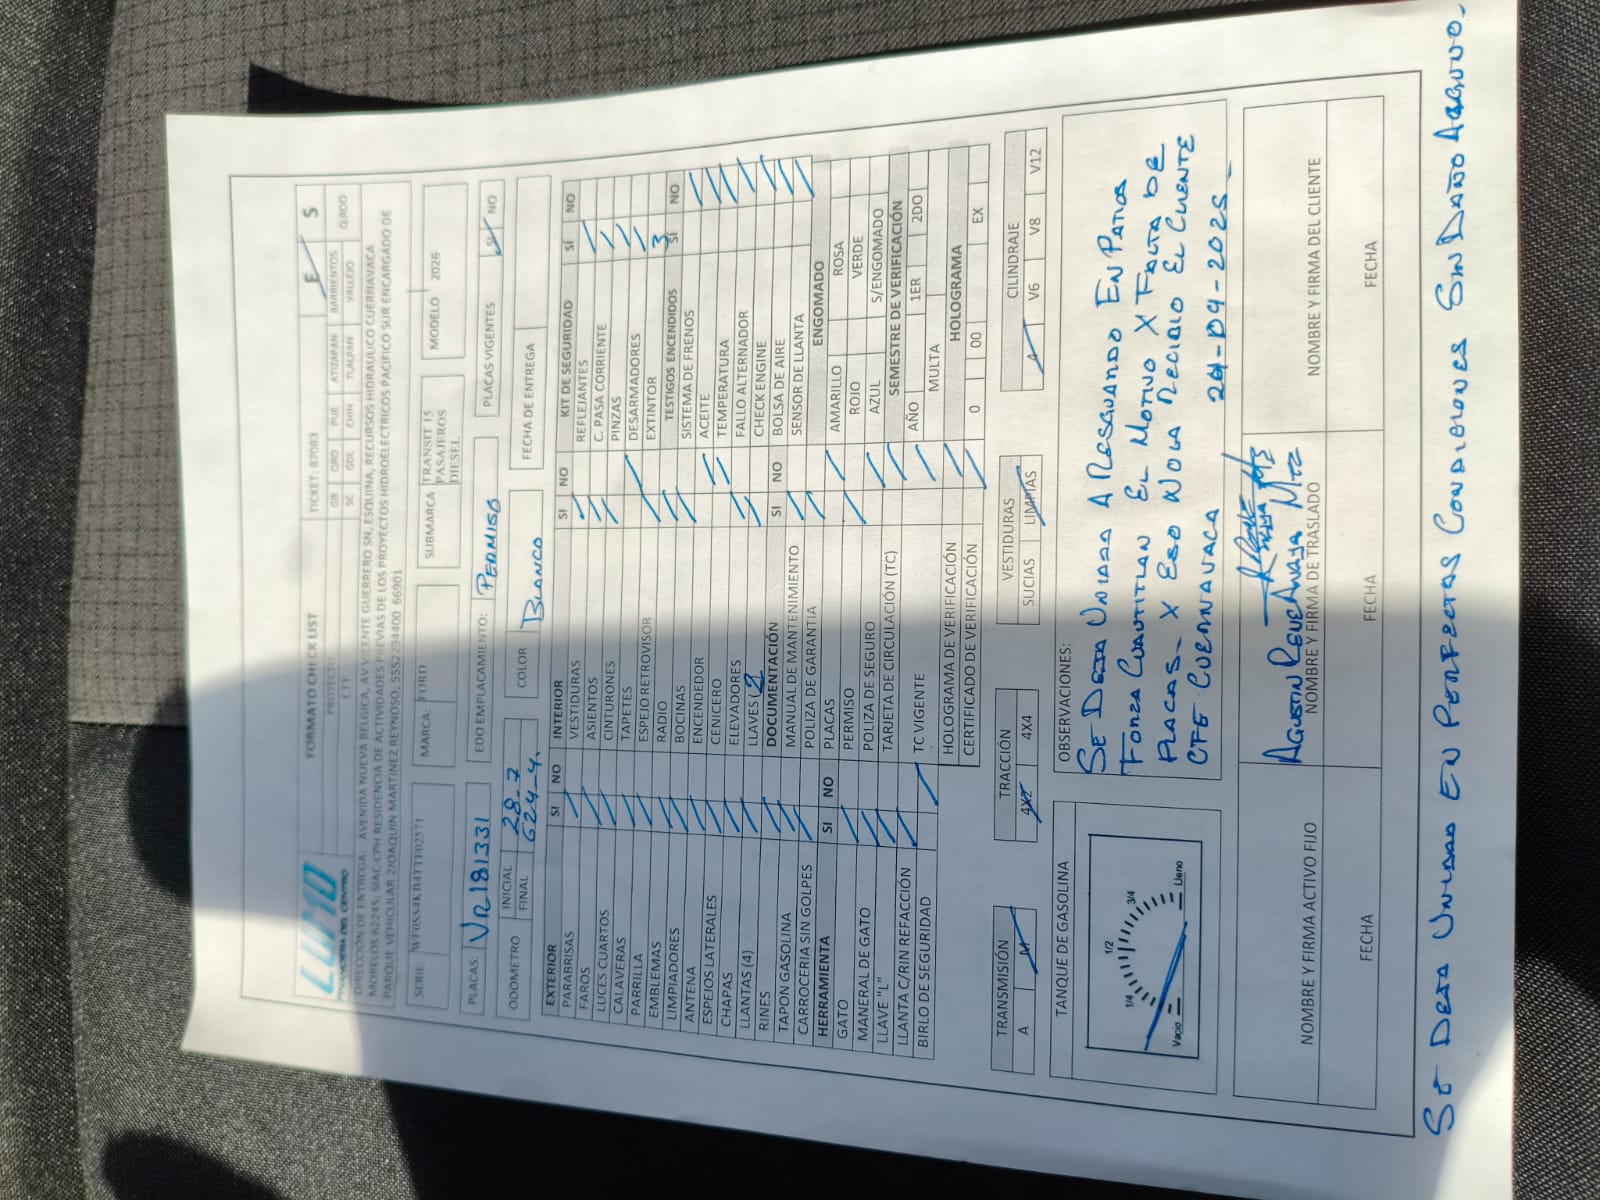 LUMO
FINANCIERA DEL CENTRO
FORMATO CHECK LIST
TICKET: 87083
E S
PROYECTO
CFE
GN QRO PUE ATIZAPAN BARRIENTOS Q.ROO
SC GDL CHIH TLALPAN VALLEJO
DIRECCIÓN DE ENTREGA: AVENIDA NUEVA BELGICA, AV VICENTE GUERRERO SN, ESQUINA, RECURSOS HIDRAULICO CUERNAVACA
MORELOS 62245; SIAC-CPH RESIDENCIA DE ACTIVIDADES PREVIAS DE LOS PROYECTOS HIDROELECTRICOS PACIFICO SUR ENCARGADO DE
PARQUE VEHICULAR 2JOAQUIN MARTINEZ REYNOSO; 5552294400 66901
SERIE: WF0SS4KB4TTF02571
MARCA: FORD
SUBMARCA TRANSIT 15 PASAJEROS DIESEL
MODELO 2026
PLACAS: VR181331
EDO EMPLACAMIENTO: PERMISO
PLACAS VIGENTES SI NO
ODOMETRO INICIAL 28-7
FINAL 624-4.
COLOR BLANCO
FECHA DE ENTREGA
EXTERIOR SI NO
PARABRISAS
FAROS
LUCES CUARTOS
CALAVERAS
PARRILLA
EMBLEMAS
LIMPIADORES
ANTENA
ESPEJOS LATERALES
CHAPAS
LLANTAS (4)
RINES
TAPON GASOLINA
CARROCERIA SIN GOLPES
HERRAMIENTA SI NO
GATO
MANERAL DE GATO
LLAVE "L"
LLANTA C/RIN REFACCIÓN
BIRLO DE SEGURIDAD
INTERIOR SI NO
VESTIDURAS
ASIENTOS
CINTURONES
TAPETES
ESPEJO RETROVISOR
RADIO
BOCINAS
ENCENDEDOR
CENICERO
ELEVADORES
LLAVES (2
DOCUMENTACIÓN SI NO
MANUAL DE MANTENIMIENTO
POLIZA DE GARANTIA
PLACAS
PERMISO
POLIZA DE SEGURO
TARJETA DE CIRCULACIÓN (TC)
TC VIGENTE
HOLOGRAMA DE VERIFICACIÓN
CERTIFICADO DE VERIFICACIÓN
KIT DE SEGURIDAD SÍ NO
REFLEJANTES
C. PASA CORRIENTE
PINZAS
DESARMADORES
EXTINTOR
TESTIGOS ENCENDIDOS SÍ NO
SISTEMA DE FRENOS
ACEITE
TEMPERATURA
FALLO ALTERNADOR
CHECK ENGINE
BOLSA DE AIRE
SENSOR DE LLANTA
ENGOMADO
AMARILLO ROSA
ROJO VERDE
AZUL S/ENGOMADO
SEMESTRE DE VERIFICACIÓN
AÑO 1ER 2DO
MULTA
HOLOGRAMA
0 00 EX
TRANSMISIÓN
A M
TRACCIÓN
4X2 4X4
VESTIDURAS
SUCIAS LIMPIAS
CILINDRAJE
4 V6 V8 V12
TANQUE DE GASOLINA
Vacio 1/4 1/2 3/4 Lleno
OBSERVACIONES:
SE DEJA UNIDAD A RESGUARDO EN PATIO
FORZA CUAUTITLAN EL MOTIVO X FALTA DE
PLACAS- X ESO NO LA RECIBIO EL CLIENTE
CFE CUERNAVACA 29-09-2025
AGUSTIN AMAYA MTZ
NOMBRE Y FIRMA ACTIVO FIJO
NOMBRE Y FIRMA DE TRASLADO
NOMBRE Y FIRMA DEL CLIENTE
FECHA
FECHA
FECHA
SE DEJA UNIDAD EN PERFECTAS CONDICIONES SIN DAÑO ALGUNO.